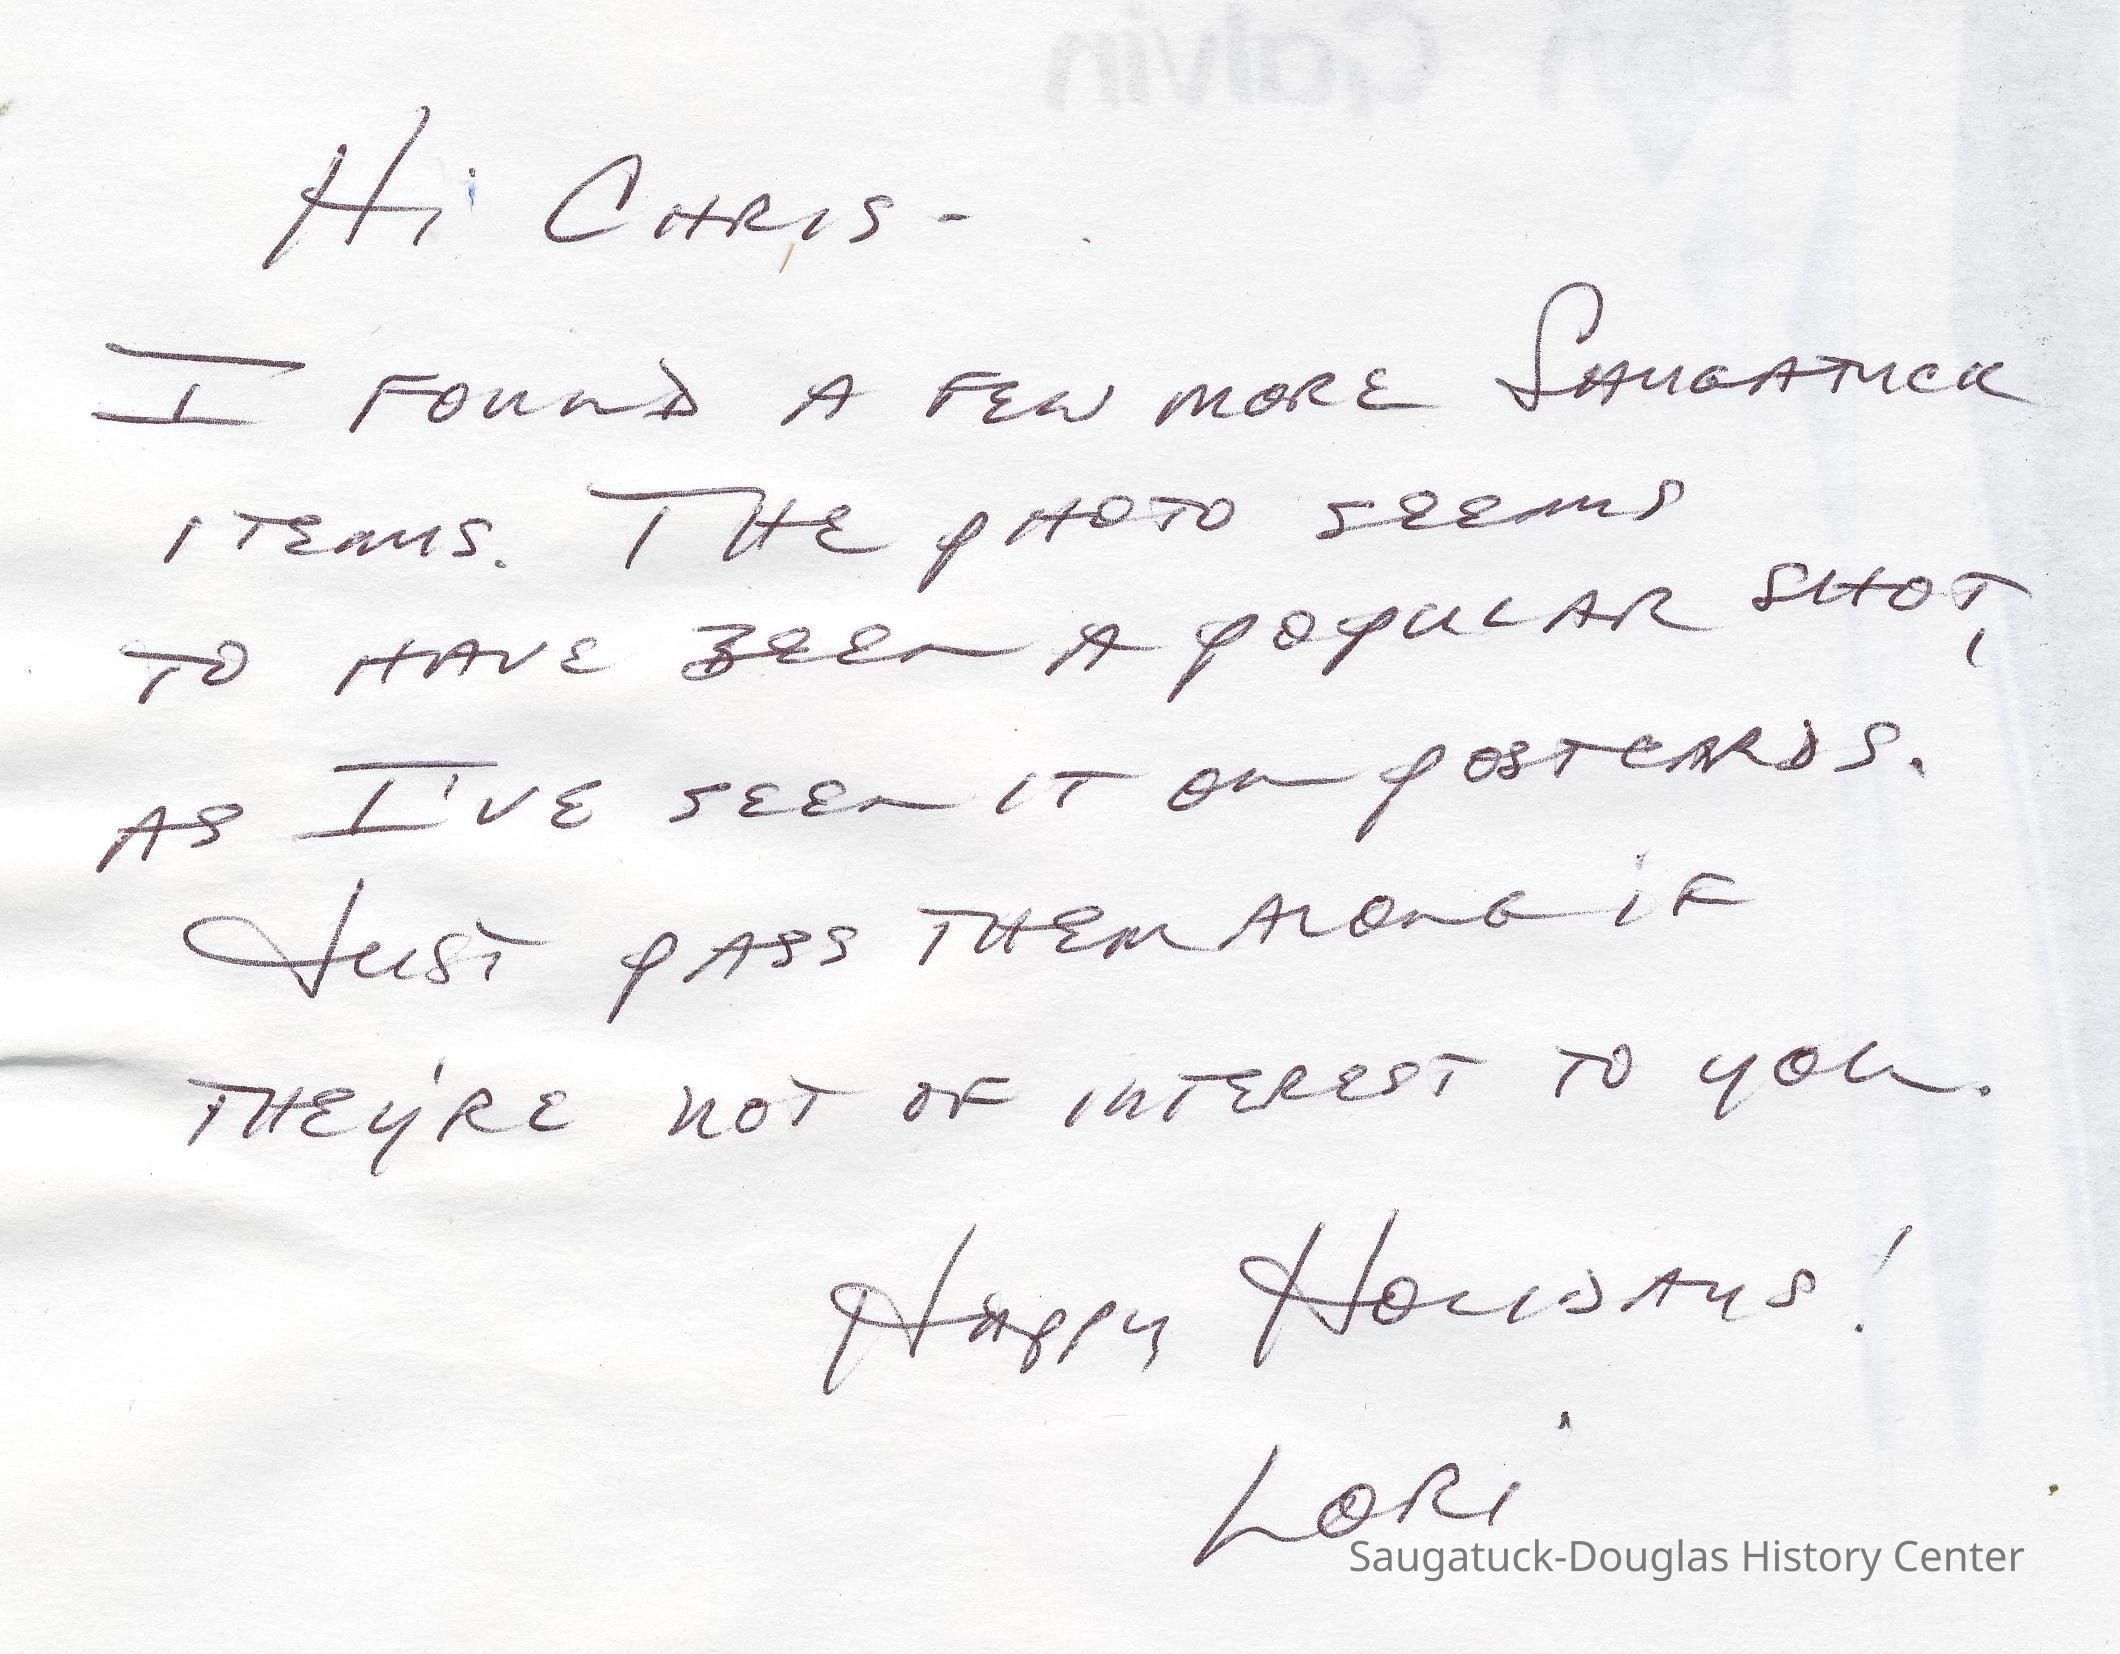 Hi Chris-
I found a few more Saugatuck
items. The photo seems
to have been a popular shot,
as I've seen it on postcards.
Just pass them along if
they're not of interest to you.
Happy Holidays!
Lori
Saugatuck-Douglas History Center